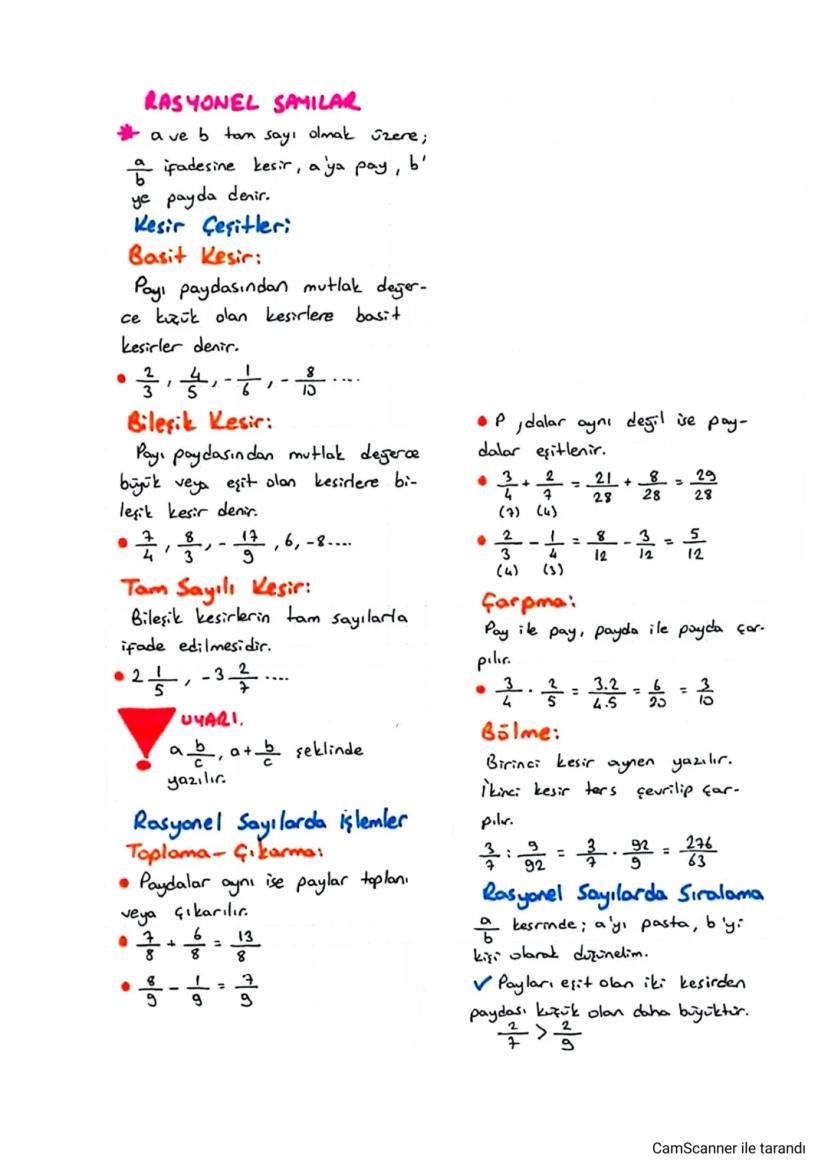 RASYONEL SAYILAR
* a ve b tam sayı olmak üzere;
a/b ifadesine kesir, a'ya pay, b'
ye payda denir.
Kesir Çeşitleri
Basit Kesir:
Payı paydasından mutlak değer-
ce küçük olan kesirlere basit
kesirler denir.
• 2/3, 4/5, -1/6, -8/10 ....
Bileşik Kesir:
Payı paydasından mutlak değerce
büyük veya eşit olan kesirlere bi-
leşik kesir denir.
• 7/4, 8/3, -17/9, 6, -8....
Tam Sayılı Kesir:
Bileşik kesirlerin tam sayılarla
ifade edilmesidir.
• 2 1/5, -3 2/7 ....
UYARI.
a b/c, a+b/c şeklinde
yazılır.
Rasyonel Sayılarda İşlemler
Toplama - Çıkarma:
• Paydalar aynı ise paylar toplanı
veya çıkarılır.
• 7/8 + 6/8 = 13/8
• 8/9 - 1/9 = 7/9
• P ,dalar aynı değil ise pay-
dalar eşitlenir.
• 3/4 + 2/7 = 21/28 + 8/28 = 29/28
(7) (4)
• 2/3 - 1/4 = 8/12 - 3/12 = 5/12
(4) (3)
Çarpma:
Pay ile pay, payda ile payda çar-
pılır.
• 3/4 . 2/5 = 3.2/4.5 = 6/20 = 3/10
Bölme:
Birinci kesir aynen yazılır.
İkinci kesir ters çevrilip çar-
pılır.
3/7 : 9/92 = 3/7 . 92/9 = 276/63
Rasyonel Sayılarda Sıralama
a/b kesrinde; a'yı pasta, b'yi
kişi olarak düşünelim.
✓ Payları eşit olan iki kesirden
paydası küçük olan daha büyüktür.
2/7 > 2/9
CamScanner ile tarandı